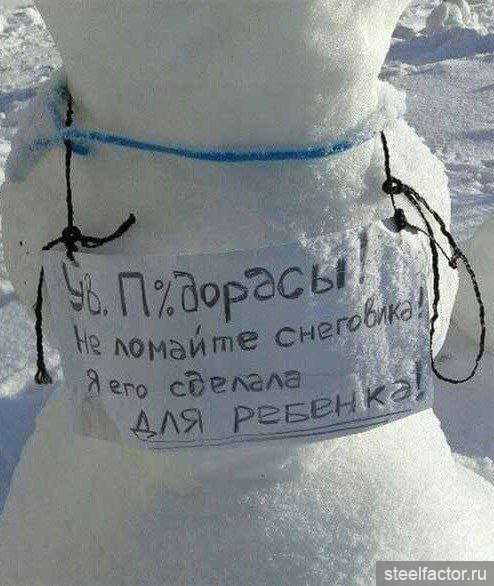 Ув. П%дорасы!
Не ломайте снеговика!
Я его сделала
ДЛЯ РЕБЕНКА!
steelfactor.ru